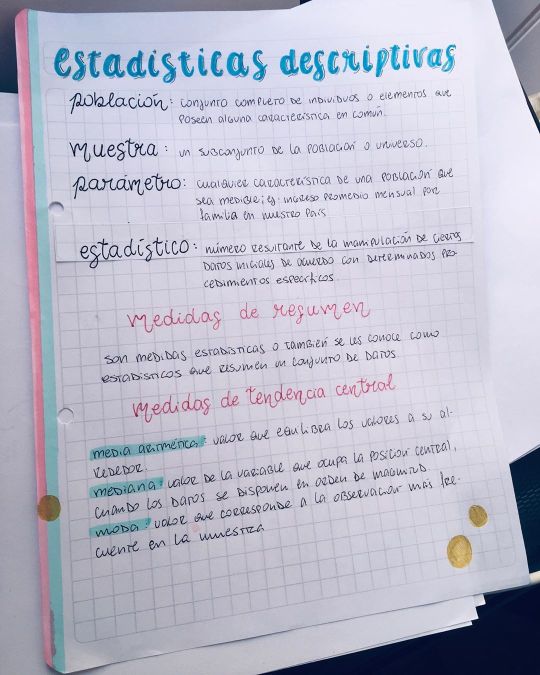 estadísticas descriptivas
población: conjunto completo de individuos o elementos que
poseen alguna característica en común.
muestra: un subconjunto de la población o universo.
parámetro: cualquier característica de una población que
sea medible; ej: ingreso promedio mensual por
familia en nuestro país
estadístico: número resultante de la manipulación de ciertos
datos iniciales de acuerdo con determinados pro-
cedimientos específicos.
medidas de resumen
son medidas estadísticas o también se les conoce como
estadísticos que resumen un conjunto de datos
medidas de tendencia central
media aritmética: valor que equilibra los valores a su al-
rededor.
mediana: valor de la variable que ocupa la posición central,
cuando los datos se disponen en orden de magnitud.
moda: valor que corresponde a la observación más fre-
cuente en la muestra